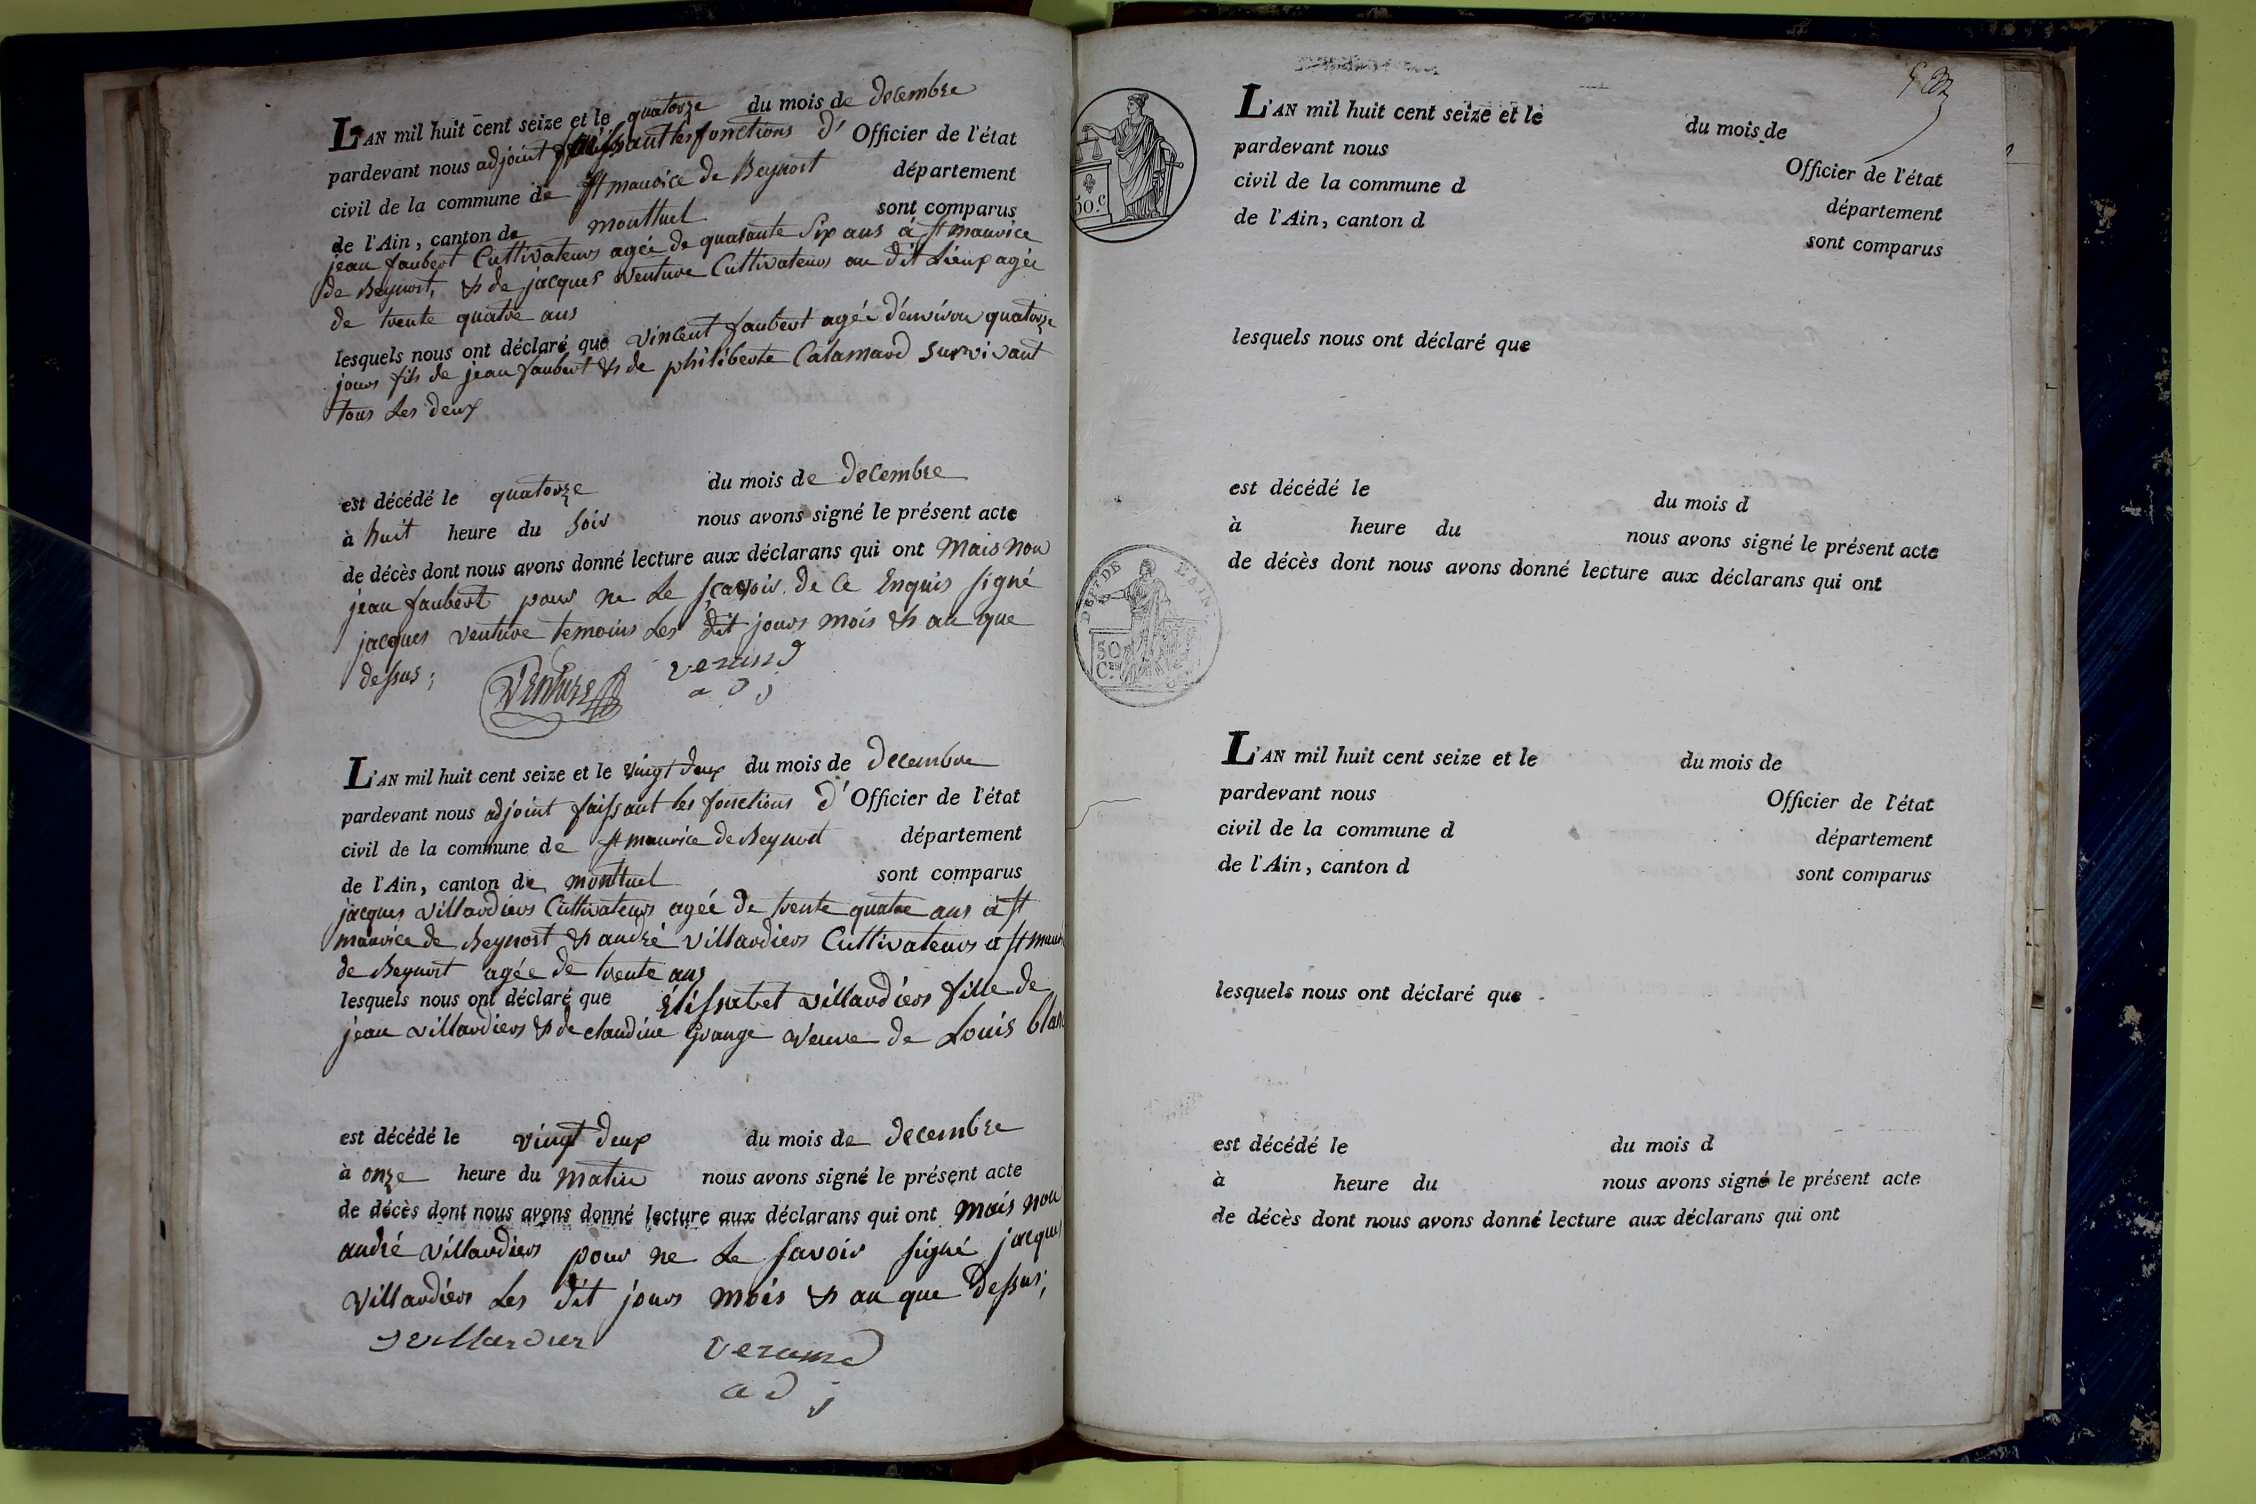 L'AN mil huit cent seize et le quatorze du mois de decembre
pardevant nous adjoint faissant les fonctions d' Officier de l'état
civil de la commune de st maurice de Beynost département
de l'Ain, canton de montluel sont comparus
jean faubert Cultivateurs agée de quarante Six ans á st maurice
de Beynost, & de jacques venture Cultivateurs au dit Lieux agée
de trente quatre ans
lesquels nous ont déclaré que vincent faubert agée d'environ quatorze
jours fils de jean faubert & de philiberte Calamard survivant
tous Les deux
est décédé le quatorze du mois de decembre
à huit heure du soir nous avons signé le présent acte
de décès dont nous avons donné lecture aux déclarans qui ont Mais non
jean faubert pour ne Le sçavoir de Ce Enquis signé
jacques venture temoins Les dit jours mois & an que
dessus;
venture verand
adj
L'AN mil huit cent seize et le vingt deux du mois de decembre
pardevant nous adjoint faissant les fonctions d' Officier de l'état
civil de la commune de st maurice de Beynost département
de l'Ain, canton de montluel sont comparus
jacques villardiers Cultivateurs agée de trente quatre ans á st
maurice de Beynost & andré villardiers Cultivateurs á st mauri
de Beynost agée de trente ans
lesquels nous ont déclaré que Élissabet villardiers fille de
jean villardiers & de claudine Grange veuve de Louis blanc
est décédé le vingt deux du mois de decembre
à onze heure du matin nous avons signé le présent acte
de décès dont nous avons donné lecture aux déclarans qui ont mais non
andré villardiers pour ne Le savoir signé jacques
villardiers Les dit jours mois & an que dessus;
J villardier verand
adj
50.C
L'AN mil huit cent seize et le du mois de
pardevant nous Officier de l'état
civil de la commune d département
de l'Ain, canton d sont comparus
lesquels nous ont déclaré que
est décédé le du mois d
à heure du nous avons signé le présent acte
de décès dont nous avons donné lecture aux déclarans qui ont
DEPT DE L'AIN
50
Ces
L'AN mil huit cent seize et le du mois de
pardevant nous Officier de l'état
civil de la commune d département
de l'Ain, canton d sont comparus
lesquels nous ont déclaré que
est décédé le du mois d
à heure du nous avons signé le présent acte
de décès dont nous avons donné lecture aux déclarans qui ont